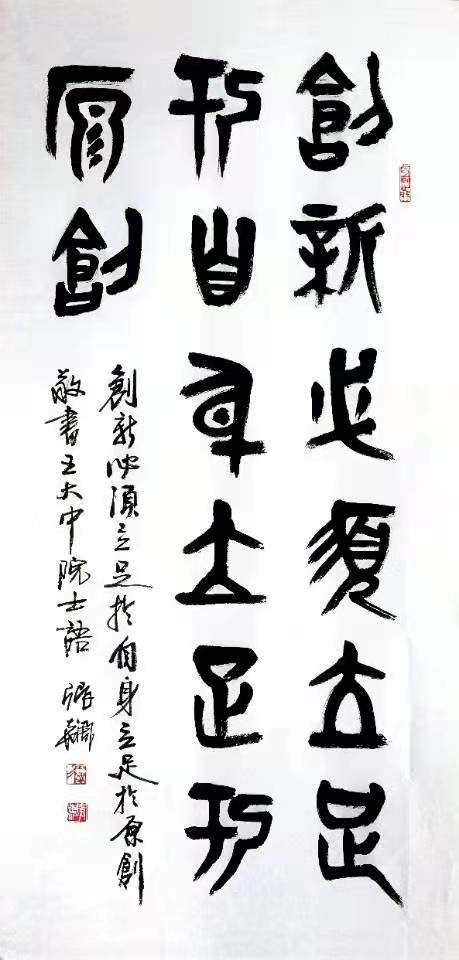 創新必須立足
於自身立足於
原創
創新必須立足於自身立足於原創
敬書王大中院士語 張